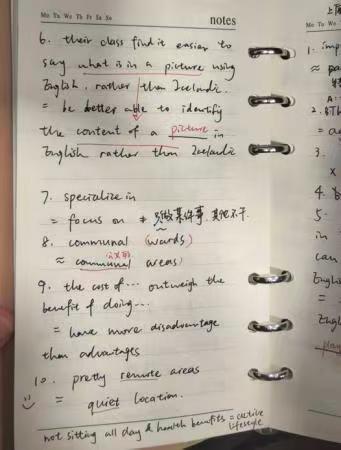 Mo Tu We Th Fr Sa Su
notes
6. their class find it easier to
say what is in a picture using
English rather than Icelandic.
= be better able to identify
the content of a picture in
English rather than Icelandic
7. specialize in
= focus on ≠ 只做某件事, 其他不干.
8. communal (wards)
≈ communal areas
公共的
9. the cost of... outweigh the
benefit of doing...
= have more disadvantage
than advantages
10. pretty remote areas
= quiet location.
not sitting all day & health benefits = active
lifestyle
上海
Mo Tu We
1. imp
≈ pa
A:
2.
= a
3.
x
4.
5.
in
can
Englis
=
Engl
play